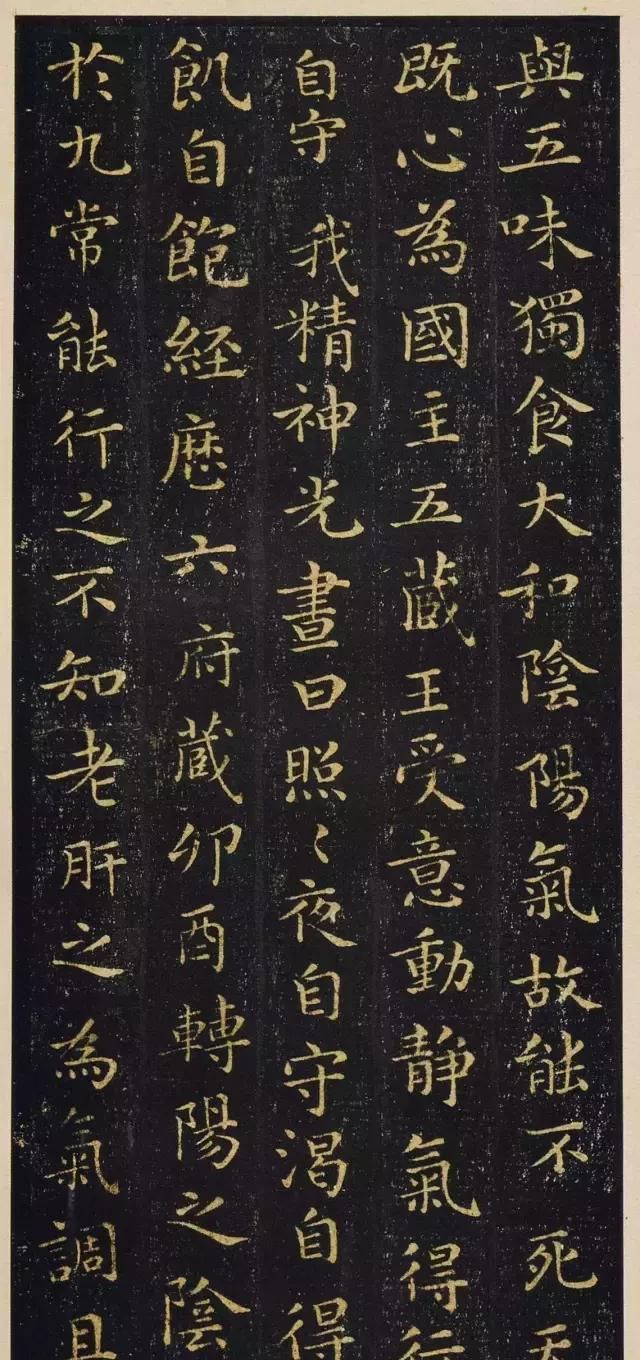 與五味獨食大和陰陽氣故能不死天
既心為國主五蔵王受意動静氣得行
自守我精神光晝日照〻夜自守渴自得
飢自飽経歴六府蔵卯酉轉陽之陰
於九常能行之不知老肝之為氣調且